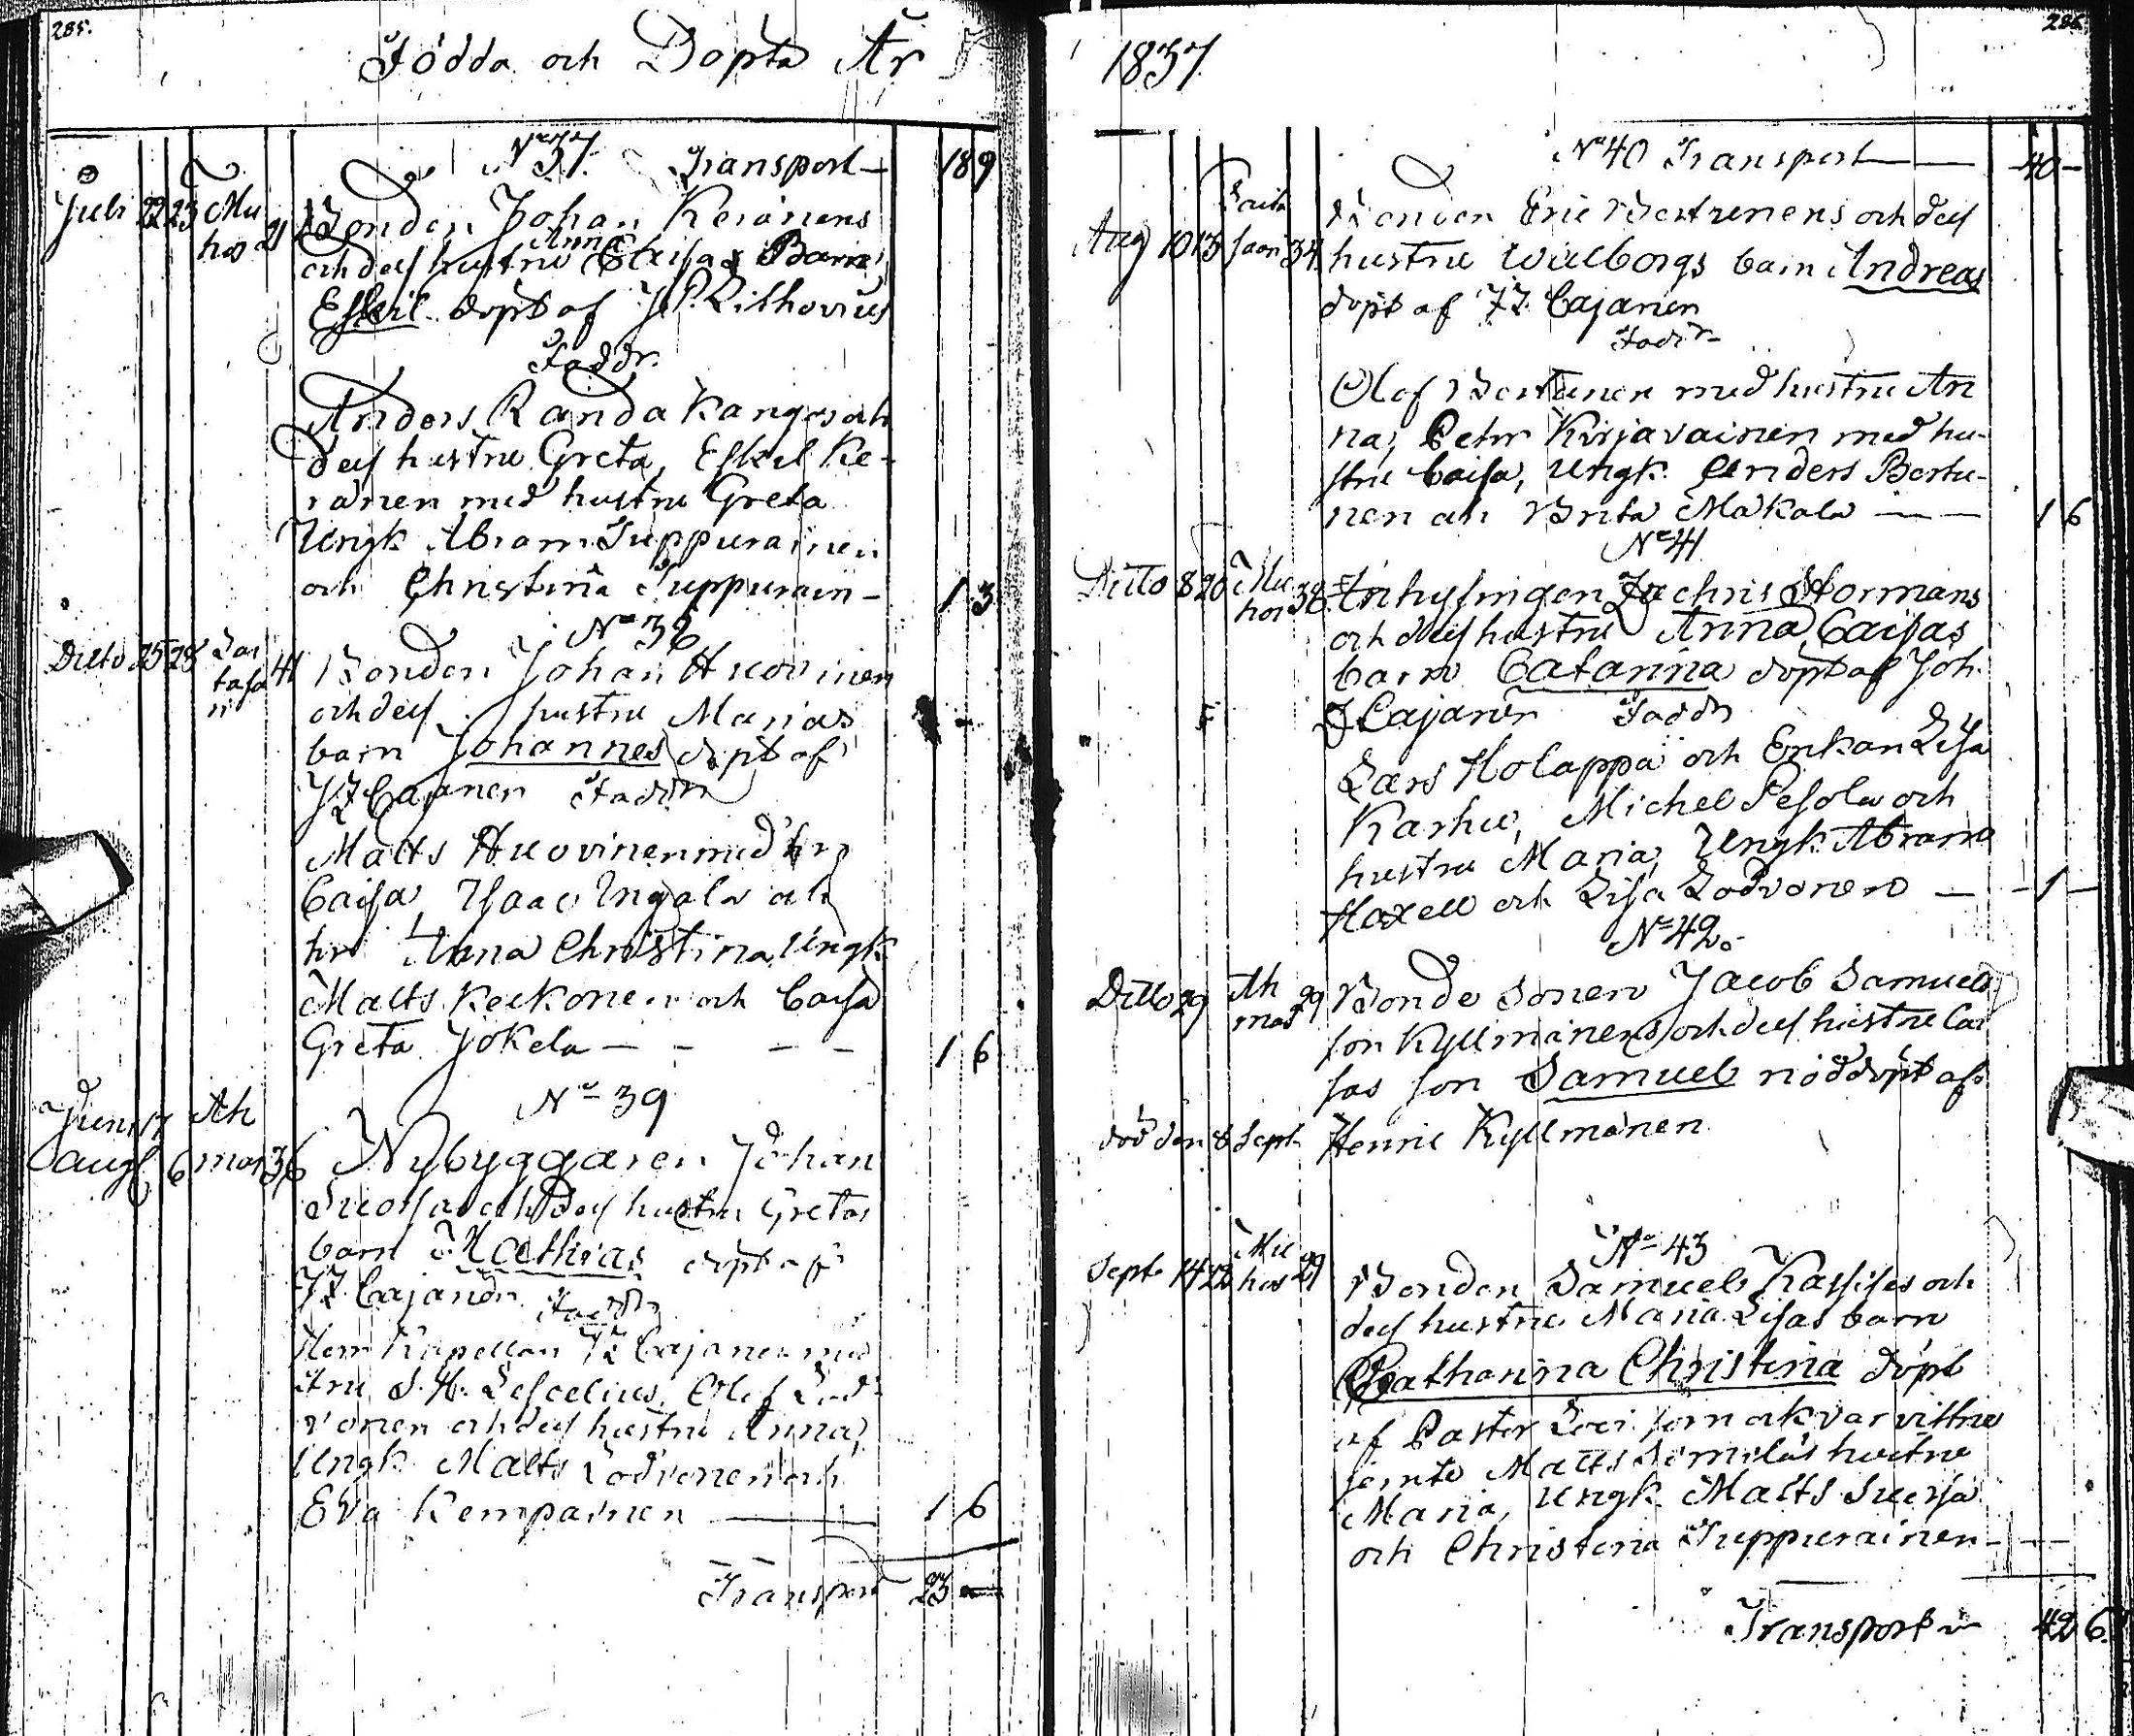 285.
Födda och Döpta År
No 37. Transport — 18 9
Juli 22 23 Mu
hos 21
Bonden Johan Keränens
och dess hustru Anna Caisas Barn
Eskil döpt af J P. Lithovius
Faddr.
Anders Randakangas och
dess hustru Greta, Eskel Ke-
ränen med hustru Greta
Ungk Abram Tuppurainen
och Christina Tuppurain- 1 3
No 38
Ditto 25 28 41
Bonden Johan Huovinen
och dess hustru Marias
barn Johannes döpt af
J F Cajanen Faddr
Matts Huovinen med hru
Caisa, Isaac Ingala och
hru Anna Christina, Ungk
Matts Keckonen och Caisa
Greta Jokela — - - - 1 6
No 39
Juni 17 Ah
aug 6 mas 36
Nybyggaren Johan
Suorsa och dess hustru Gretas
barn Mathias döpt af
J F Cajanen Faddr
Herr Kapellan J F Cajanen med
Olof Löd-
vonen och dess hustru Anna,
Ungk Matts Lödvonen och
Eva Kempainen — 1 6
Transport 23 —
286.
1837.
No 40 Transport — 40 -
Aug 10 13 saari 34
Bonden Eric Bertunens och dess
hustru Walborgs barn Andreas
döpt af J F Cajanen
Faddr
Olof Bertunen med hustru An
na, Pehr Kirjavainen med hu-
stru Caisa, Ungk Anders Bertu-
nen och Brita Makala — 1 6
No 41
Ditto 8 20 Mu
hos 38
Inhysingen Zachris Hormans
och dess hustru Anna Caisas
barn Catarina döpt af Joh.
F Cajanen Faddr
Lars Holappa och Enkan Lisa
Karhu, Michel Pesola och
hustru Maria, Ungk Abram
Haxell och Lisa Lodvonen — - 1 -
No 42.
Ditto 29 Ah
mas 29
Bonde Sonen Jacob Samuels
son Kyllmänens och dess hustru Cai
sas son Samuel nöddöpt af
död den 8 Sept Henric Kyllmänen
No 43
Sept 14 22 Mu
hos 29
Bonden Samuel Kassises och
dess hustru Maria Lisas barn
Catharina Christina döpt
af Pastor Loci som ock var vittne
jemte Matts Similäs hustru
Maria, Ungk Matts Suorsa
och Christina Tuppurainen - - -
Transport 42 6